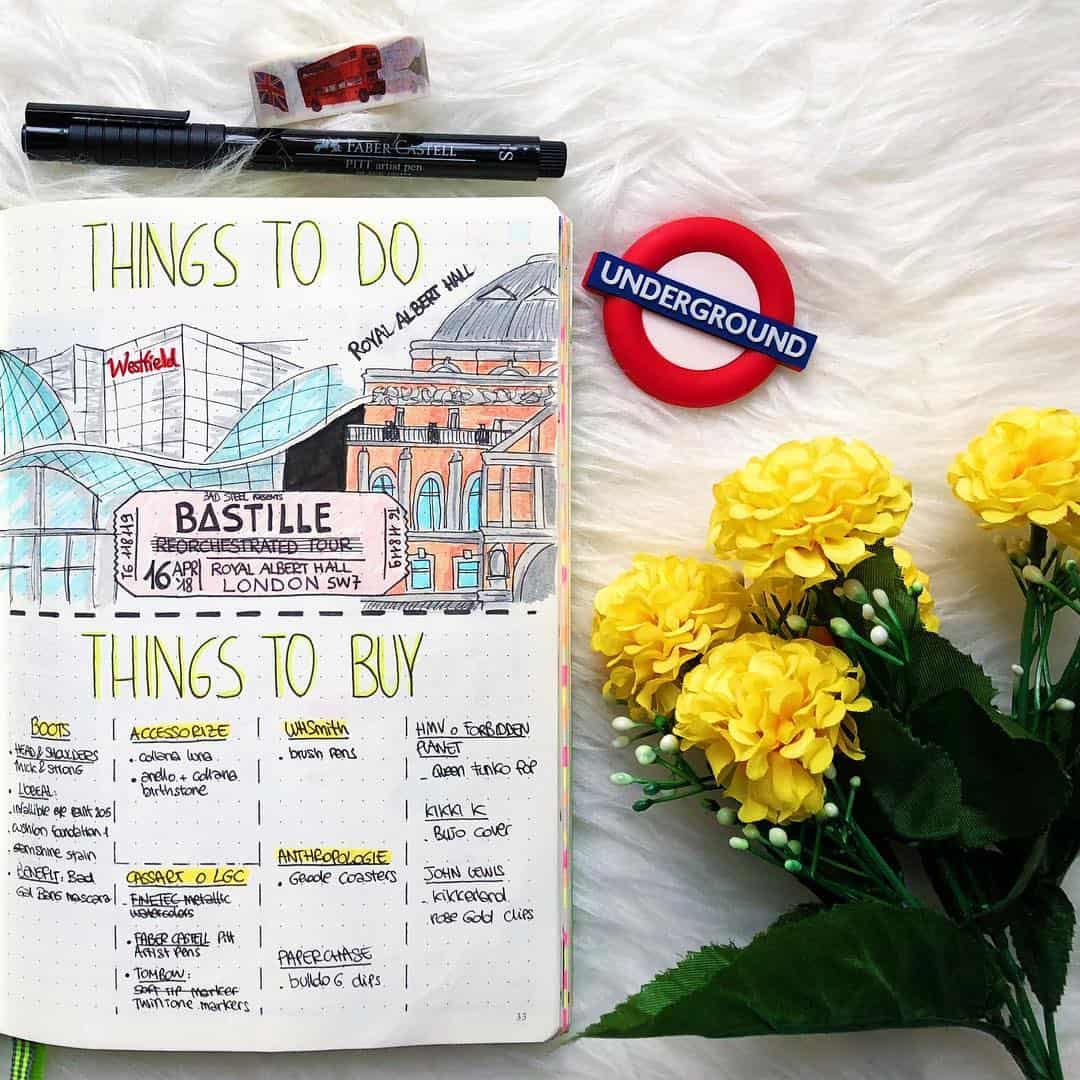 FABER CASTELL
PITT artist pen
S
THINGS TO DO
ROYAL ALBERT HALL
Westfield
UNDERGROUND
BAD STEEL PRESENTS
BASTILLE
REORCHESTRATED TOUR
16 APR '18
ROYAL ALBERT HALL
LONDON SW7
T6 118119
T6 118119
THINGS TO BUY
BOOTS
• HEAD & SHOULDERS
thick & strong
• L'OREAL:
infallible eye paint 205
• cushion foundation 1
shine stain
• BENEFIT: Bad
Gal Bang mascara
ACCESSORIZE
• collana luna
• anello + collana
birthstone
CASSART O LGC
- FINETEC metallic
watercolors
• FABER CASTELL Pitt
Artist Pens
• TOMBOW:
SOFT TIP marker
TWINTONE markers
WHSmith
• brush pens
ANTHROPOLOGIE
• Geode coasters
PAPERCHASE
• bulldog clips
HMV O FORBIDDEN
PLANET
- Queen funko POP
KIKKI K
- BUJO COVER
JOHN LEWIS
- kikkerland
- rose Gold clips
33